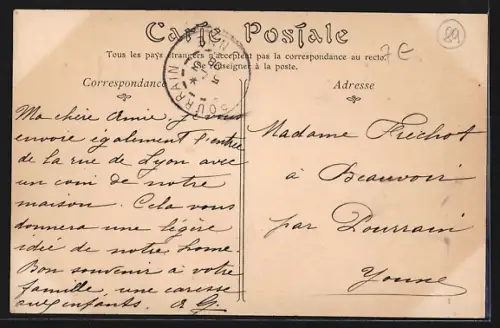 Carte Postale
Tous les pays étrangers n'acceptent pas la correspondance au recto.
Se renseigner à la poste.
7 €
89
POURRAIN
Correspondance
Ma chère Amie, je vous
envoie également l'entrée
de la rue de Lyon avec
un coin de notre
maison. Cela vous
donnera une légère
idée de notre home.
Bon souvenir à votre
famille, une caresse
aux enfants. A G.
Adresse
Madame Fréchot
à Beauvoir
par Pourrain
Yonne